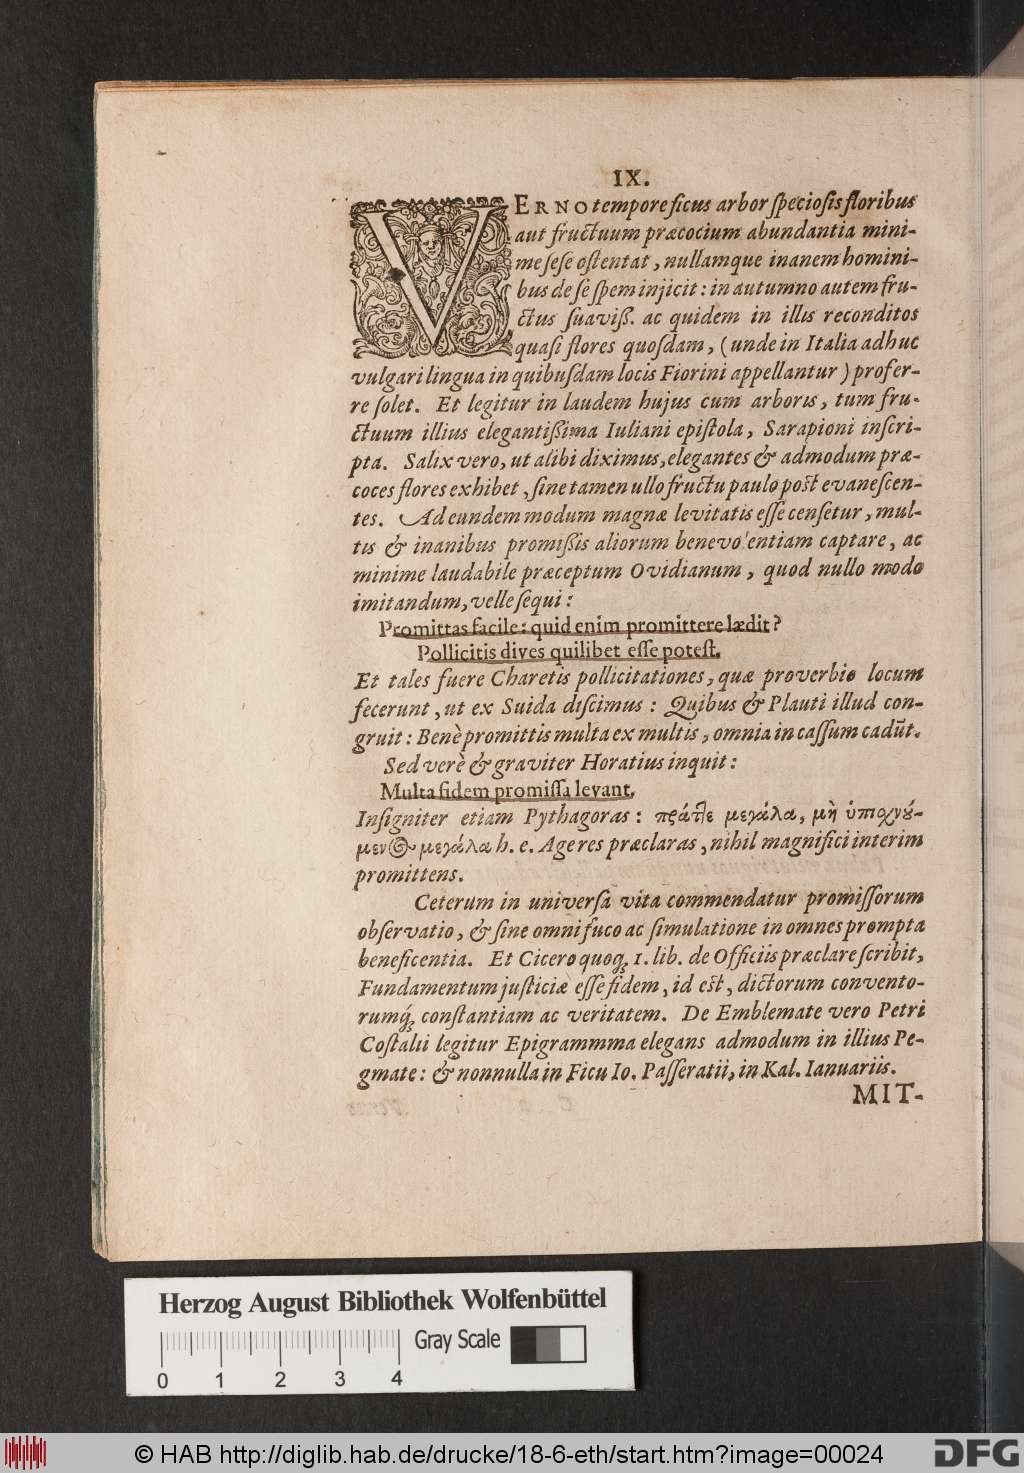 IX.
VERNO tempore ficus arbor ſpecioſis floribus
aut fructuum præcocium abundantia mini-
me ſeſe oſtentat, nullamque inanem homini-
bus de ſe ſpem injicit: in autumno autem fru-
ctus ſuaviß. ac quidem in illis reconditos
quaſi flores quoſdam, (unde in Italia adhuc
vulgari lingua in quibuſdam locis Fiorini appellantur) profer-
re ſolet. Et legitur in laudem hujus cum arboris, tum fru-
ctuum illius elegantißima Iuliani epiſtola, Sarapioni inſcri-
pta. Salix vero, ut alibi diximus, elegantes & admodum præ-
coces flores exhibet, ſine tamen ullo fructu paulo poſt evaneſcen-
tes. Ad eundem modum magnæ levitatis eſſe cenſetur, mul-
tis & inanibus promißis aliorum benevolentiam captare, ac
minime laudabile præceptum Ovidianum, quod nullo modo
imitandum, velle ſequi:
Promittas facile: quid enim promittere lædit?
Pollicitis dives quilibet eſſe poteſt.
Et tales fuere Charetis pollicitationes, quæ proverbio locum
fecerunt, ut ex Suida diſcimus: Quibus & Plauti illud con-
gruit: Benè promittis multa ex multis, omnia in caſſum cadūt.
Sed verè & graviter Horatius inquit:
Multa fidem promiſſa levant.
Inſigniter etiam Pythagoras: πράττε μεγάλα, μὴ ὑπισχνού-
μενος μεγάλα h. e. Age res præclaras, nihil magnifici interim
promittens.
Ceterum in univerſa vita commendatur promiſſorum
obſervatio, & ſine omni fuco ac ſimulatione in omnes prompta
beneficentia. Et Cicero quoq; 1. lib. de Officiis præclare ſcribit,
Fundamentum juſticiæ eſſe fidem, id eſt, dictorum convento-
rumq́; conſtantiam ac veritatem. De Emblemate vero Petri
Coſtalii legitur Epigrammma elegans admodum in illius Pe-
gmate: & nonnulla in Ficu Io. Paſſeratii, in Kal. Ianuariis.
MIT-
Herzog August Bibliothek Wolfenbüttel
Gray Scale
0 1 2 3 4
© HAB http://diglib.hab.de/drucke/18-6-eth/start.htm?image=00024
DFG